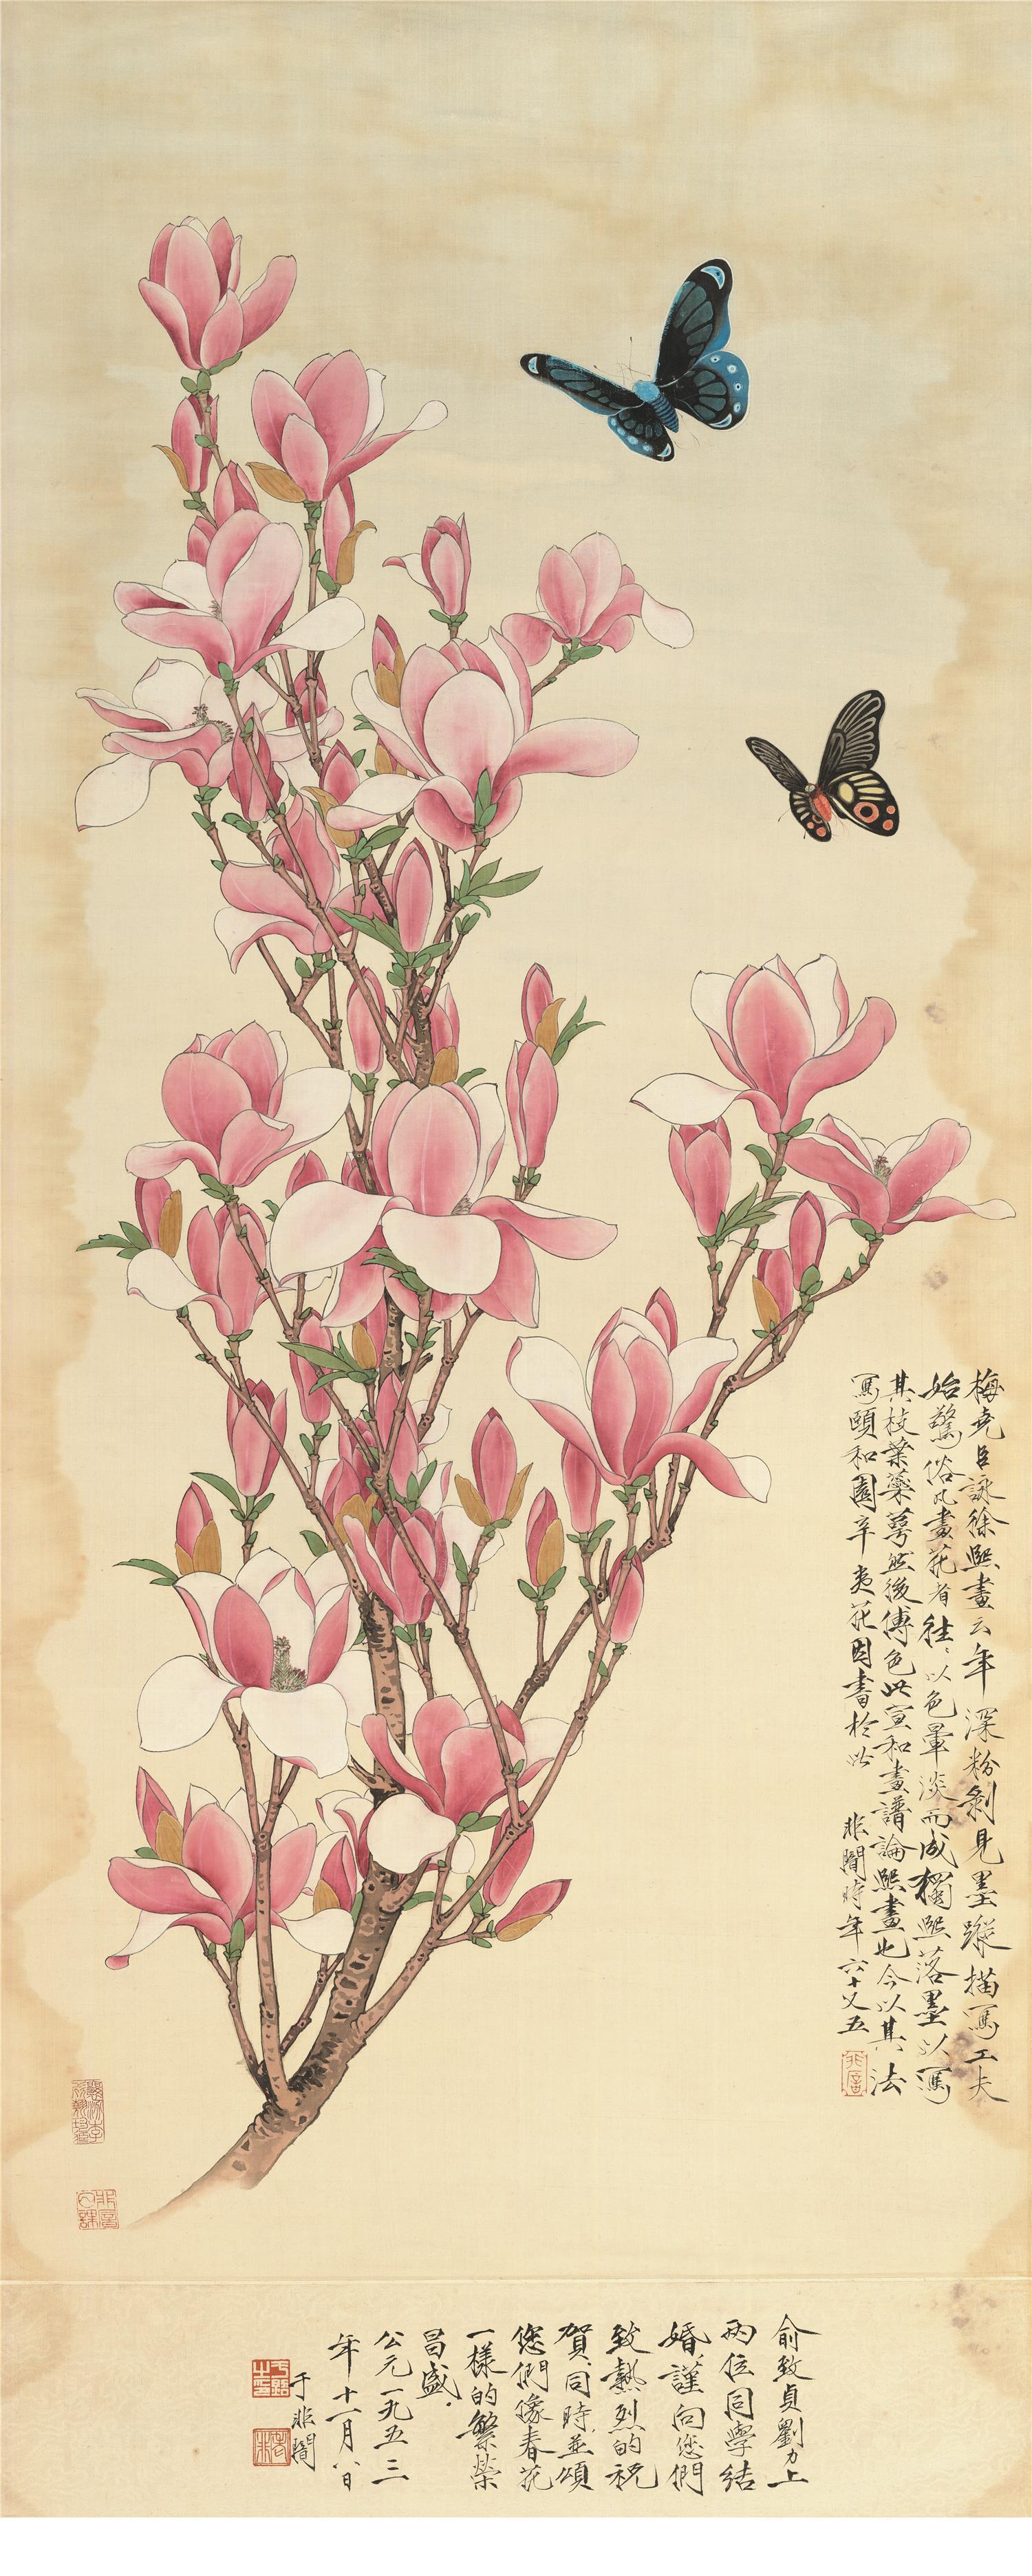 梅尧臣詠徐熙畫云年深粉剝見墨蹤描寫工夫
始驚俗凡畫花者往往以色暈淡而成獨熙落墨以寫
其枝葉蘂萼然後傅色此宣和畫譜論熙畫也今以其法
寫頤和園辛夷花因書於此 非闇時年六十又五
非闇
俞致貞劉力上
兩位同學結
婚謹向您們
致熱烈的祝
賀同時並頌
您們像春花
一樣的繁榮
昌盛
公元一九五三
年十一月八日
于非闇